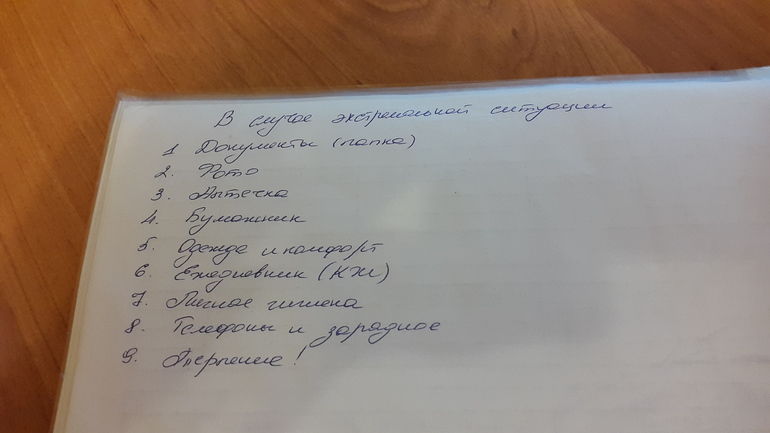 В случае экстремальной ситуации
1 Документы (папка)
2. Фото
3. Аптечка
4. Бумажник
5. Одежда и комфорт
6. Ежедневник (КЖ)
7. Личная гигиена
8. Телефоны и зарядное
9.